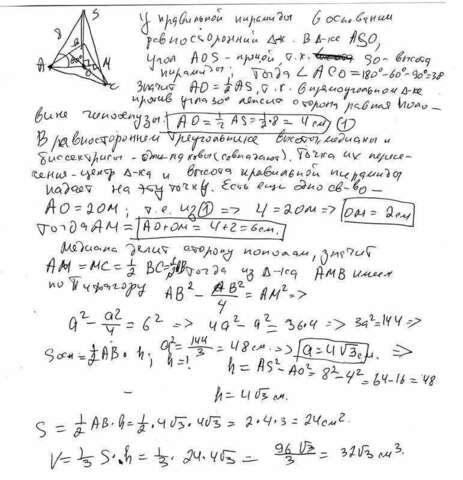 S
8
60°
A
B
O
M
C
У правильной пирамиды в основании
равносторонний Δ-к. В Δ-ке ASO,
угол AOS - прямой, т.к. SO - высота
пирамиды; тогда ∠ACO=180°-60°-90°=30
Значит AO=½AS, т.к. в прямоугольном Δ-ке
против угла 30° лежит сторона равная поло-
вине гипотенузы. AO=½AS=½·8=4см (1)
В равностороннем треугольнике высоты, медианы и
биссектрисы - одинаковы (совпадают). Точка их пересе-
чения - центр Δ-ка и высота правильной пирамиды
падает на эту точку. Есть ещё одно св-во -
AO=2OM; т.е. из (1) => 4=2OM => OM=2см
Тогда AM= AO+OM=4+2=6см.
Медиана делит сторону пополам, значит
AM=MC=½BC=½AB Тогда из Δ-ка AMB имеем
по Пифагору AB²-AB²/4=AM² =>
a²-a²/4=6² => 4a²-a²=36·4 => 3a²=144 =>
a²=144/3=48см. => a=4√3см. =>
Sосн=½AB·h; h=?
h=AS²-AO²=8²-4²=64-16=48
h=4√3см.
S=½AB·h=½·4√3·4√3=2·4·3=24см².
V=⅓S·h=⅓·24·4√3=96√3/3=32√3см³.